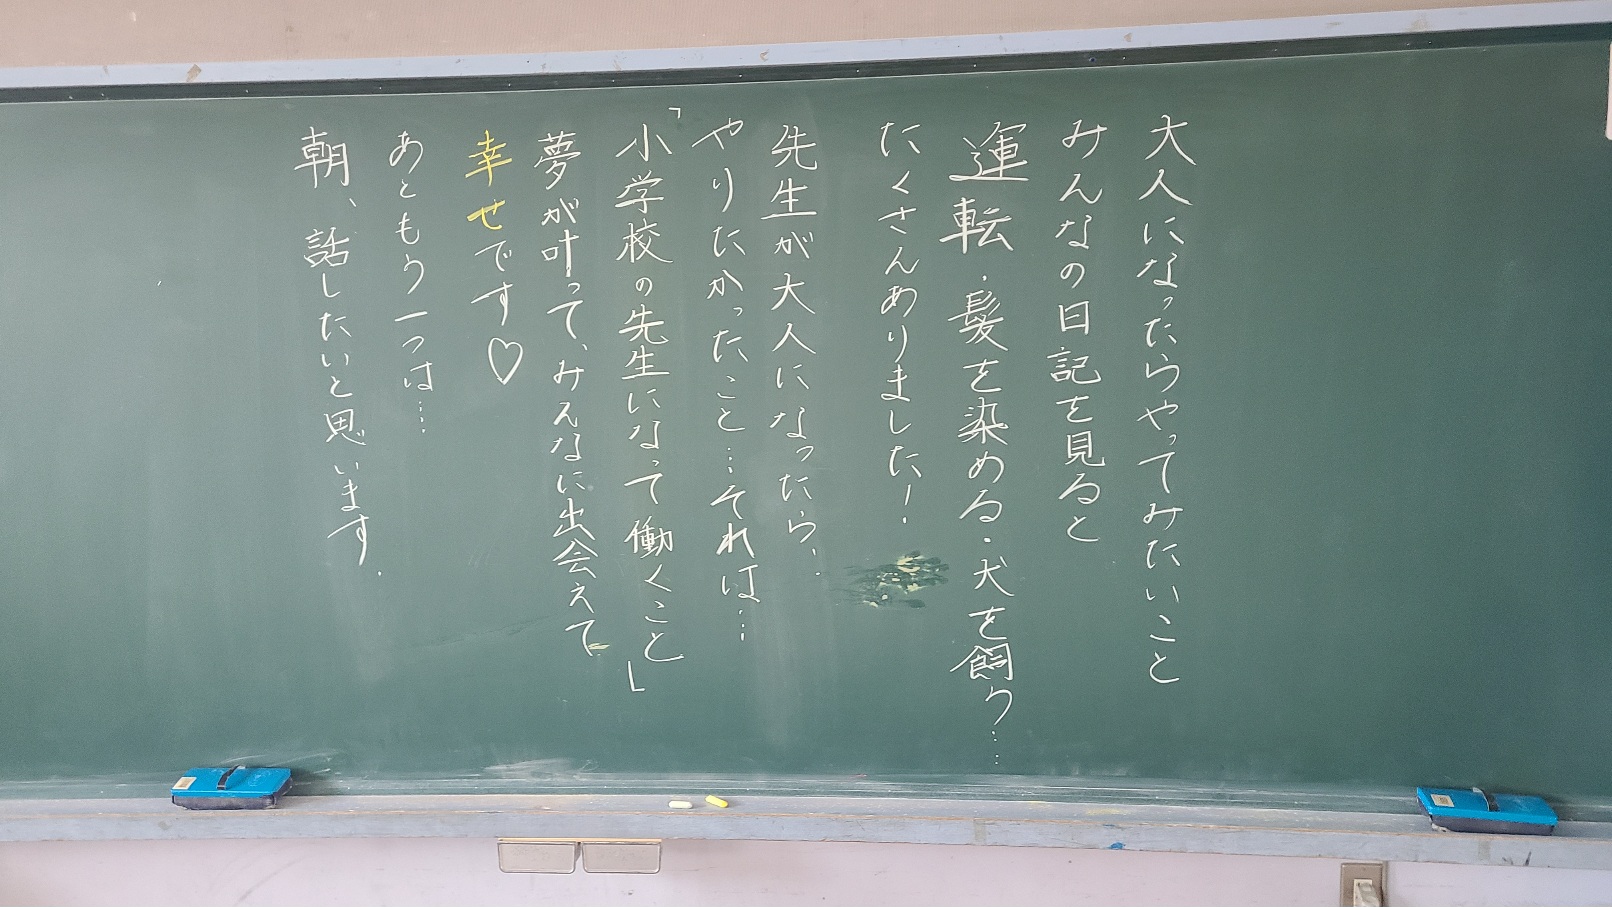 大人になったらやってみたいこと
みんなの日記を見ると
運転・髪を染める・犬を飼う……
たくさんありました！
先生が大人になったら、
やりたかったこと…それは…
「小学校の先生になって働くこと」
夢が叶って、みんなに出会えて
幸せです♡
あともう一つは…
朝、話したいと思います.